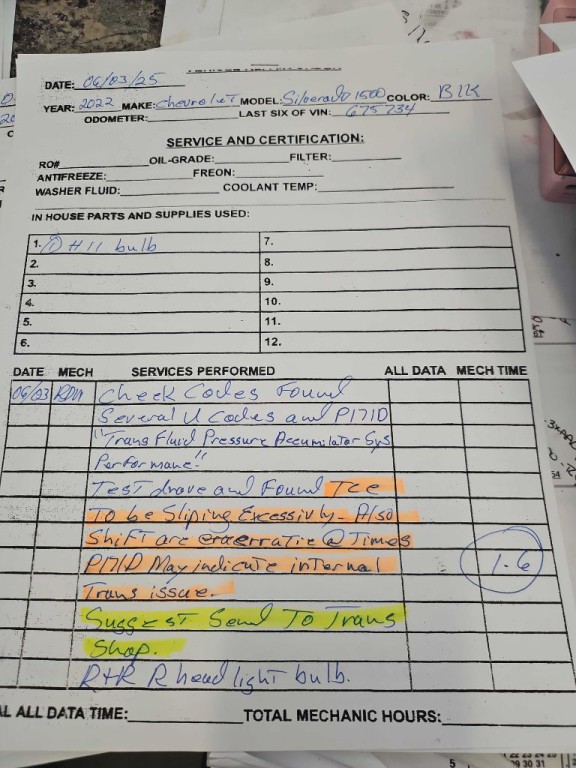 DATE: 06/03/25
YEAR: 2022 MAKE: Chevrolet MODEL: Silverado 1500 COLOR: Blk
ODOMETER: LAST SIX OF VIN: 675734
SERVICE AND CERTIFICATION:
RO# OIL-GRADE: FILTER:
ANTIFREEZE: FREON:
WASHER FLUID: COOLANT TEMP:
IN HOUSE PARTS AND SUPPLIES USED:
1. (1) H11 bulb 7.
2. 8.
3. 9.
4. 10.
5. 11.
6. 12.
DATE MECH SERVICES PERFORMED ALL DATA MECH TIME
06/03 RDM Check Codes Found
Several U Codes and P171D
"Trans Fluid Pressure Accumilator Sys
Performane."
Test drove and Found Tce
To be Sliping Excessivly. Also
Shift are erraticatic @ Times
P171D May indicate internal 1.6
Trans issue.
Suggest Send To Trans
Shop.
R+R R headlight bulb.
L ALL DATA TIME: TOTAL MECHANIC HOURS: